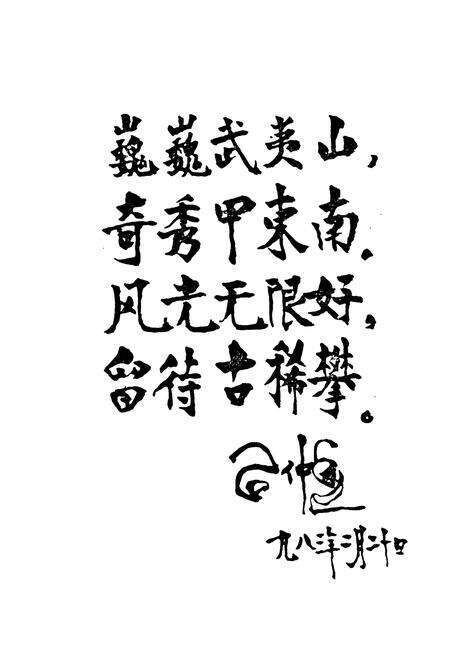 巍巍武夷山，
奇秀甲东南。
风光无限好，
留待古稀攀。
九八三年二月二十日